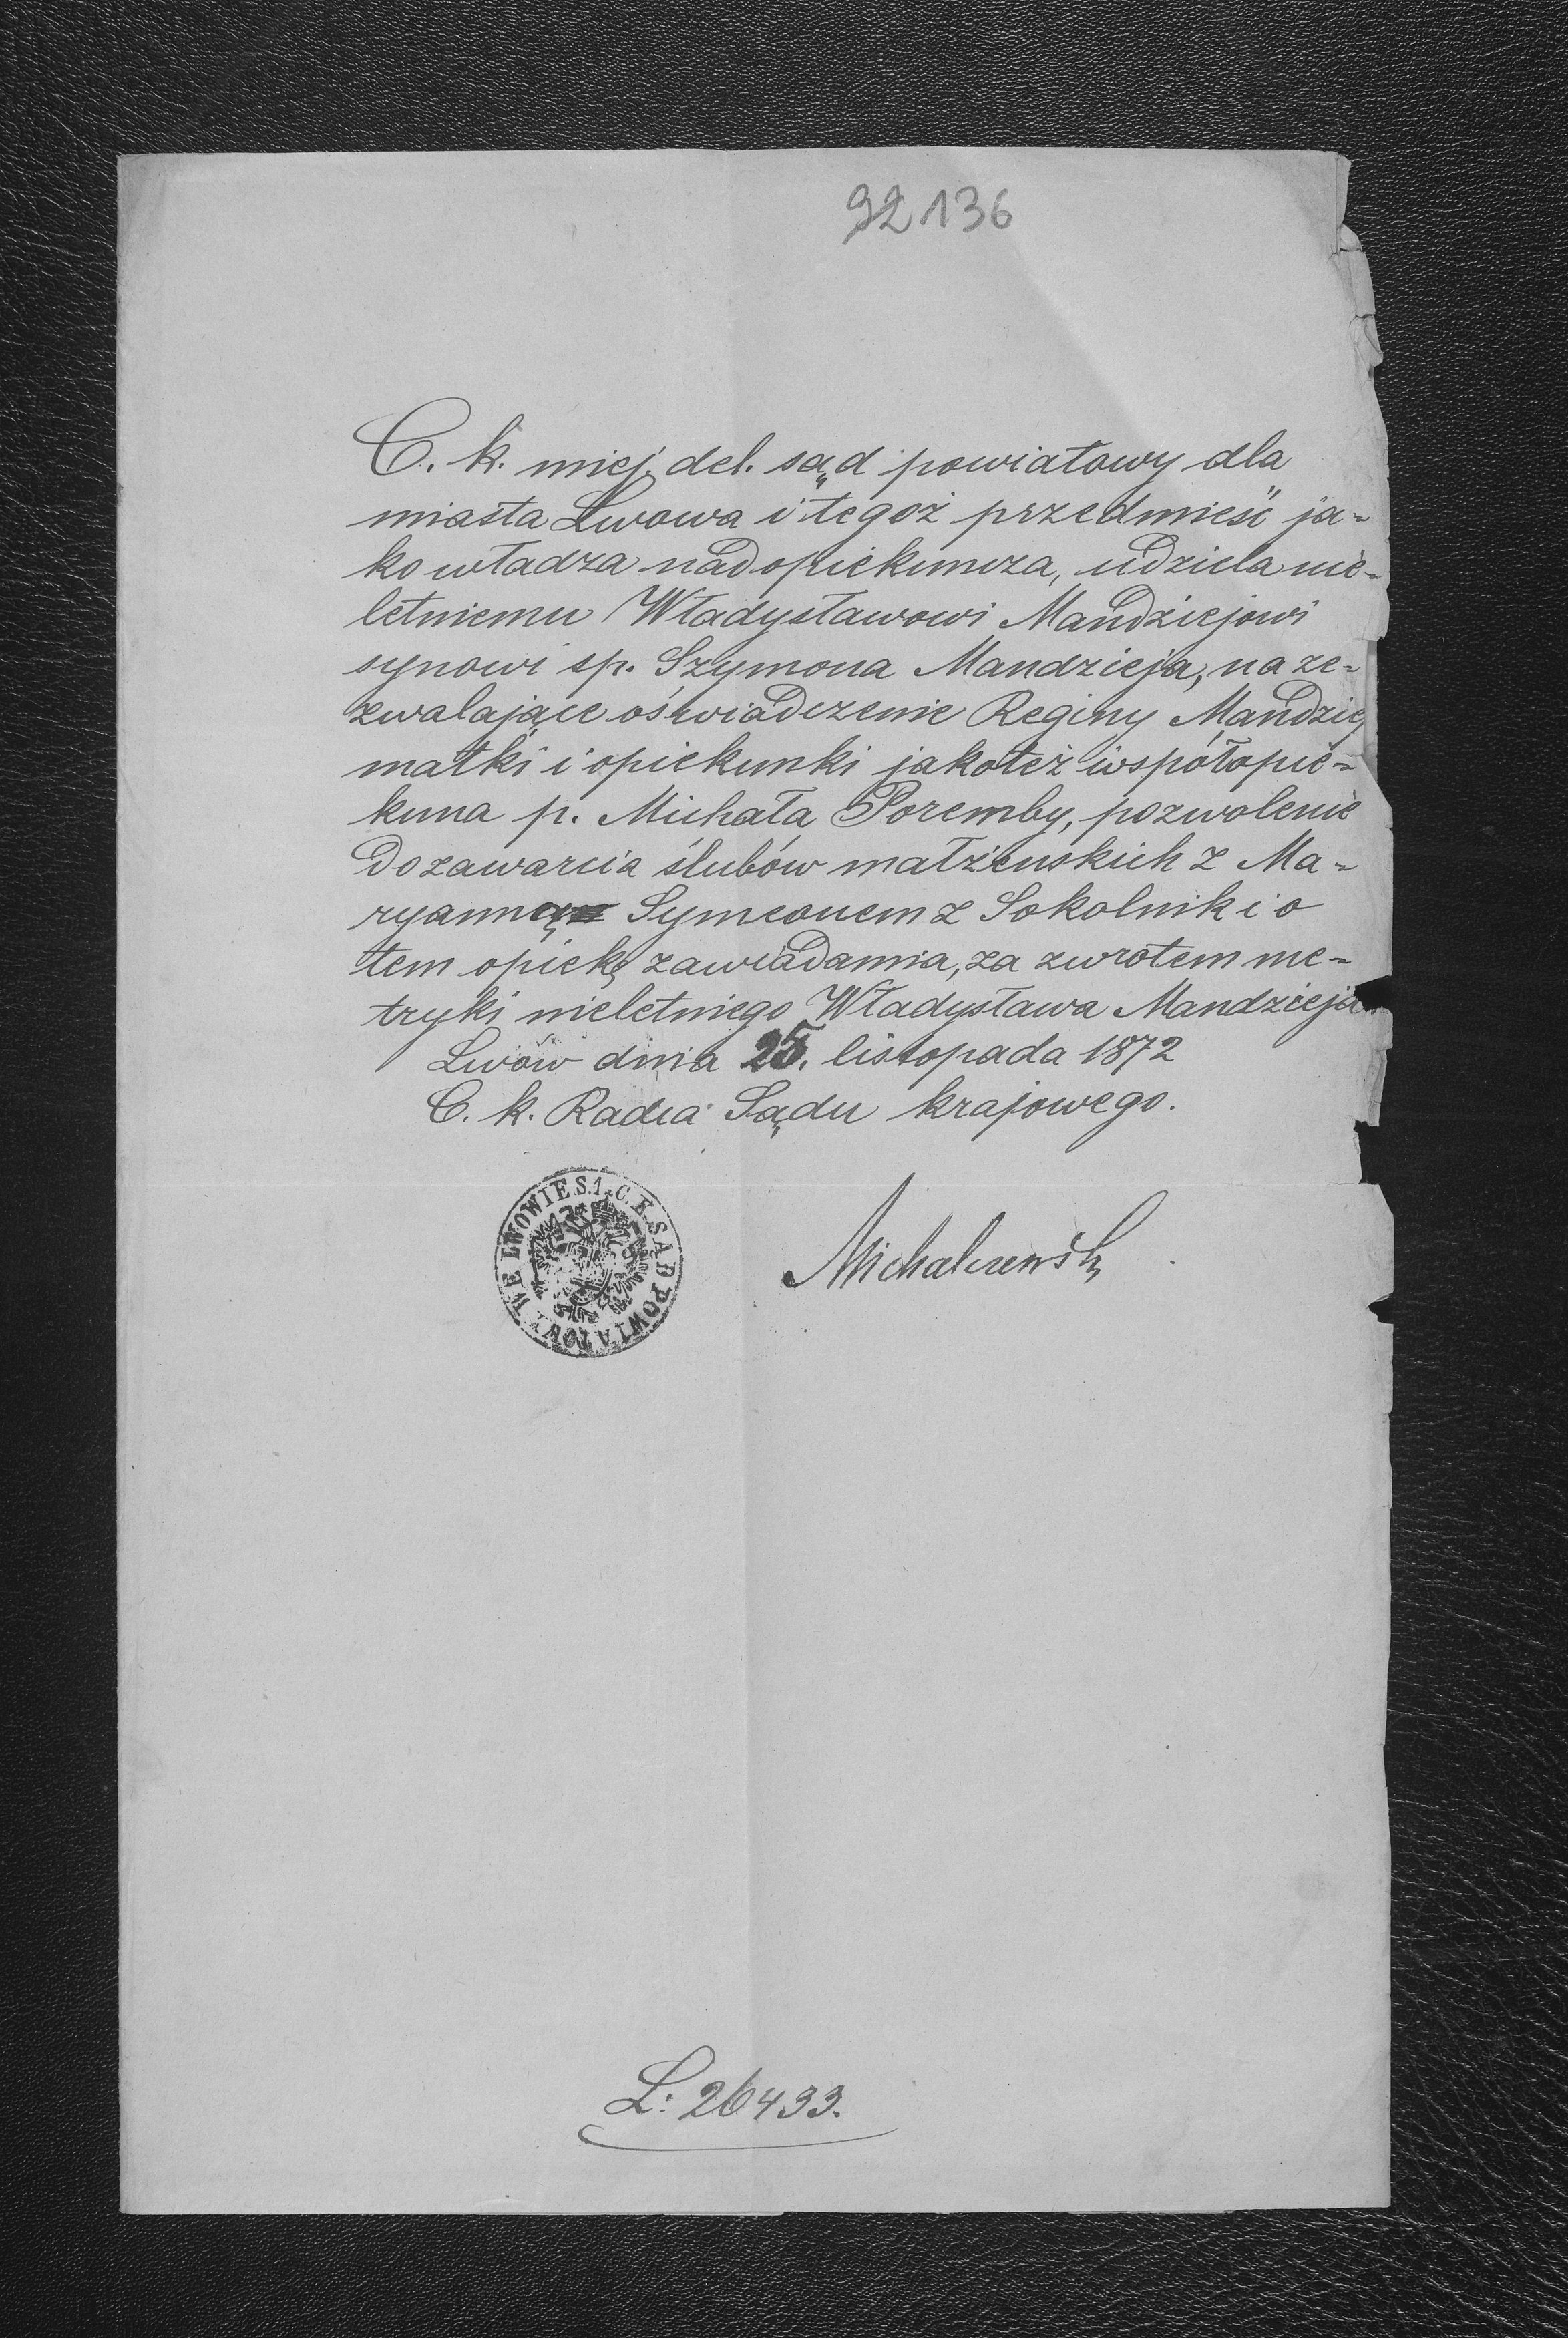 92 136
C. k. miej. del. sąd powiatowy dla
miasta Lwowa i tegoż przedmieść ja-
ko władza nadopiekuncza, udziela nie-
letniemu Władysławowi Mandziejowi
synowi sp. Szymona Mandzieja, na ze-
zwalające oświadczenie Reginy Mandziej
matki i opiekunki jakoteż współopie-
kuna p. Michała Poremby, pozwolenie
do zawarcia ślubów małżenskich z Ma-
ryanną Symeonem z Sokolnik i o
tem opiekę zawiadamia, za zwrotem me-
tryki nieletniego Władysława Mandzieja
Lwów dnia 25. listopada 1872
C. k. Radca Sądu krajowego.
C. K. SĄD POWIATOWY WE LWOWIE S.1.
Michalczewski
L: 26433.